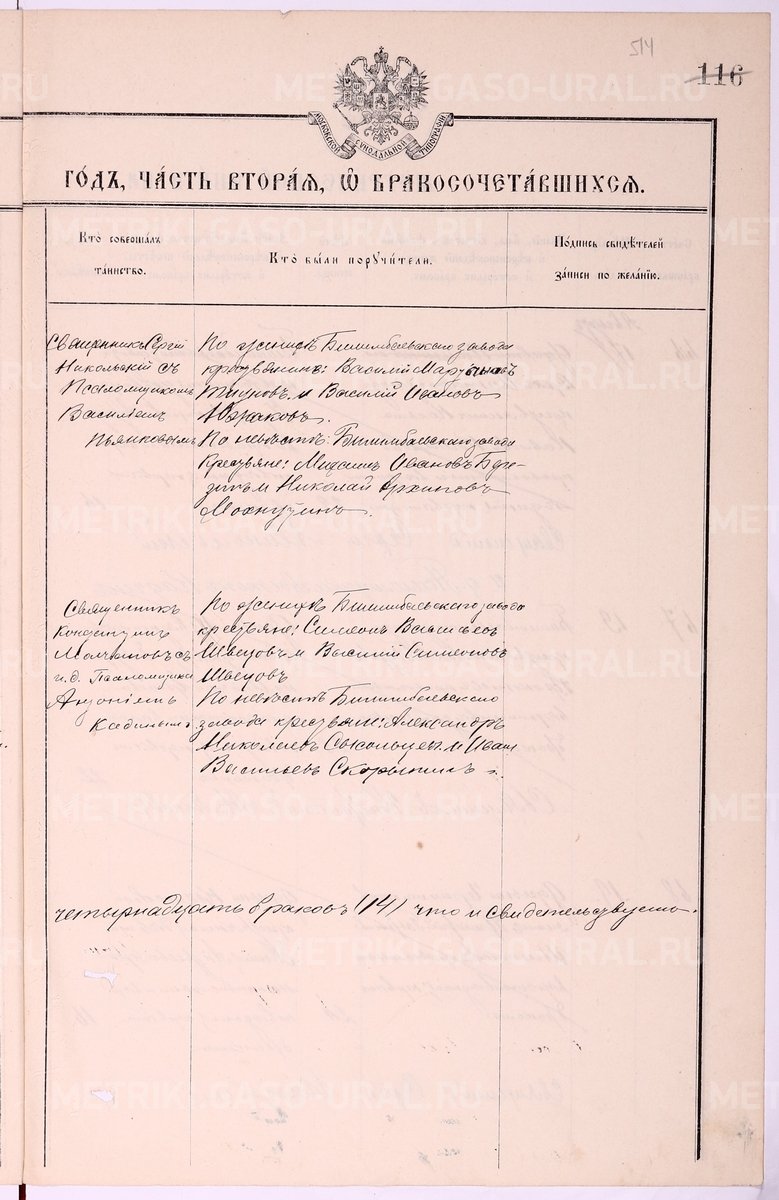 514
116
МОСКОВСКОЙ СѴНОДАЛЬНОЙ ТИПОГРАФІИ
ГОДЪ, ЧАСТЬ ВТОРАЯ, Ѡ БРАКОСОЧЕТАВШИХСЯ.
Кто совершалъ таинство.
Кто были поручители.
Подпись свидѣтелей записи по желанію.
Священникъ Сергій
Никольскій съ
Псаломщикомъ
Василіемъ
Пьянковымъ
По женихѣ Билимбаевскаго завода
крестьяне: Василій
Тиуновъ и Василій Ивановъ
Южаковъ.
По невѣстѣ: Билимбаевскаго завода
Крестьяне: Михаилъ Ивановъ Бере-
зинъ и Николай Архиповъ
Махнуткинъ.
Священникъ
Константинъ
Молчановъ съ
и.д. Псаломщика
Антоніемъ
По женихѣ Билимбаевскаго завода
крестьяне: Симеонъ Васильевъ
Швецовъ и Василій Симеоновъ
Швецовъ
По невѣстѣ Билимбаевскаго
завода крестьяне: Александръ
Николаевъ и Иванъ
Васильевъ Скорынинъ.
четырнадцать браковъ (14) что и свидетельствуемъ.
METRIKI.GASO-URAL.RU